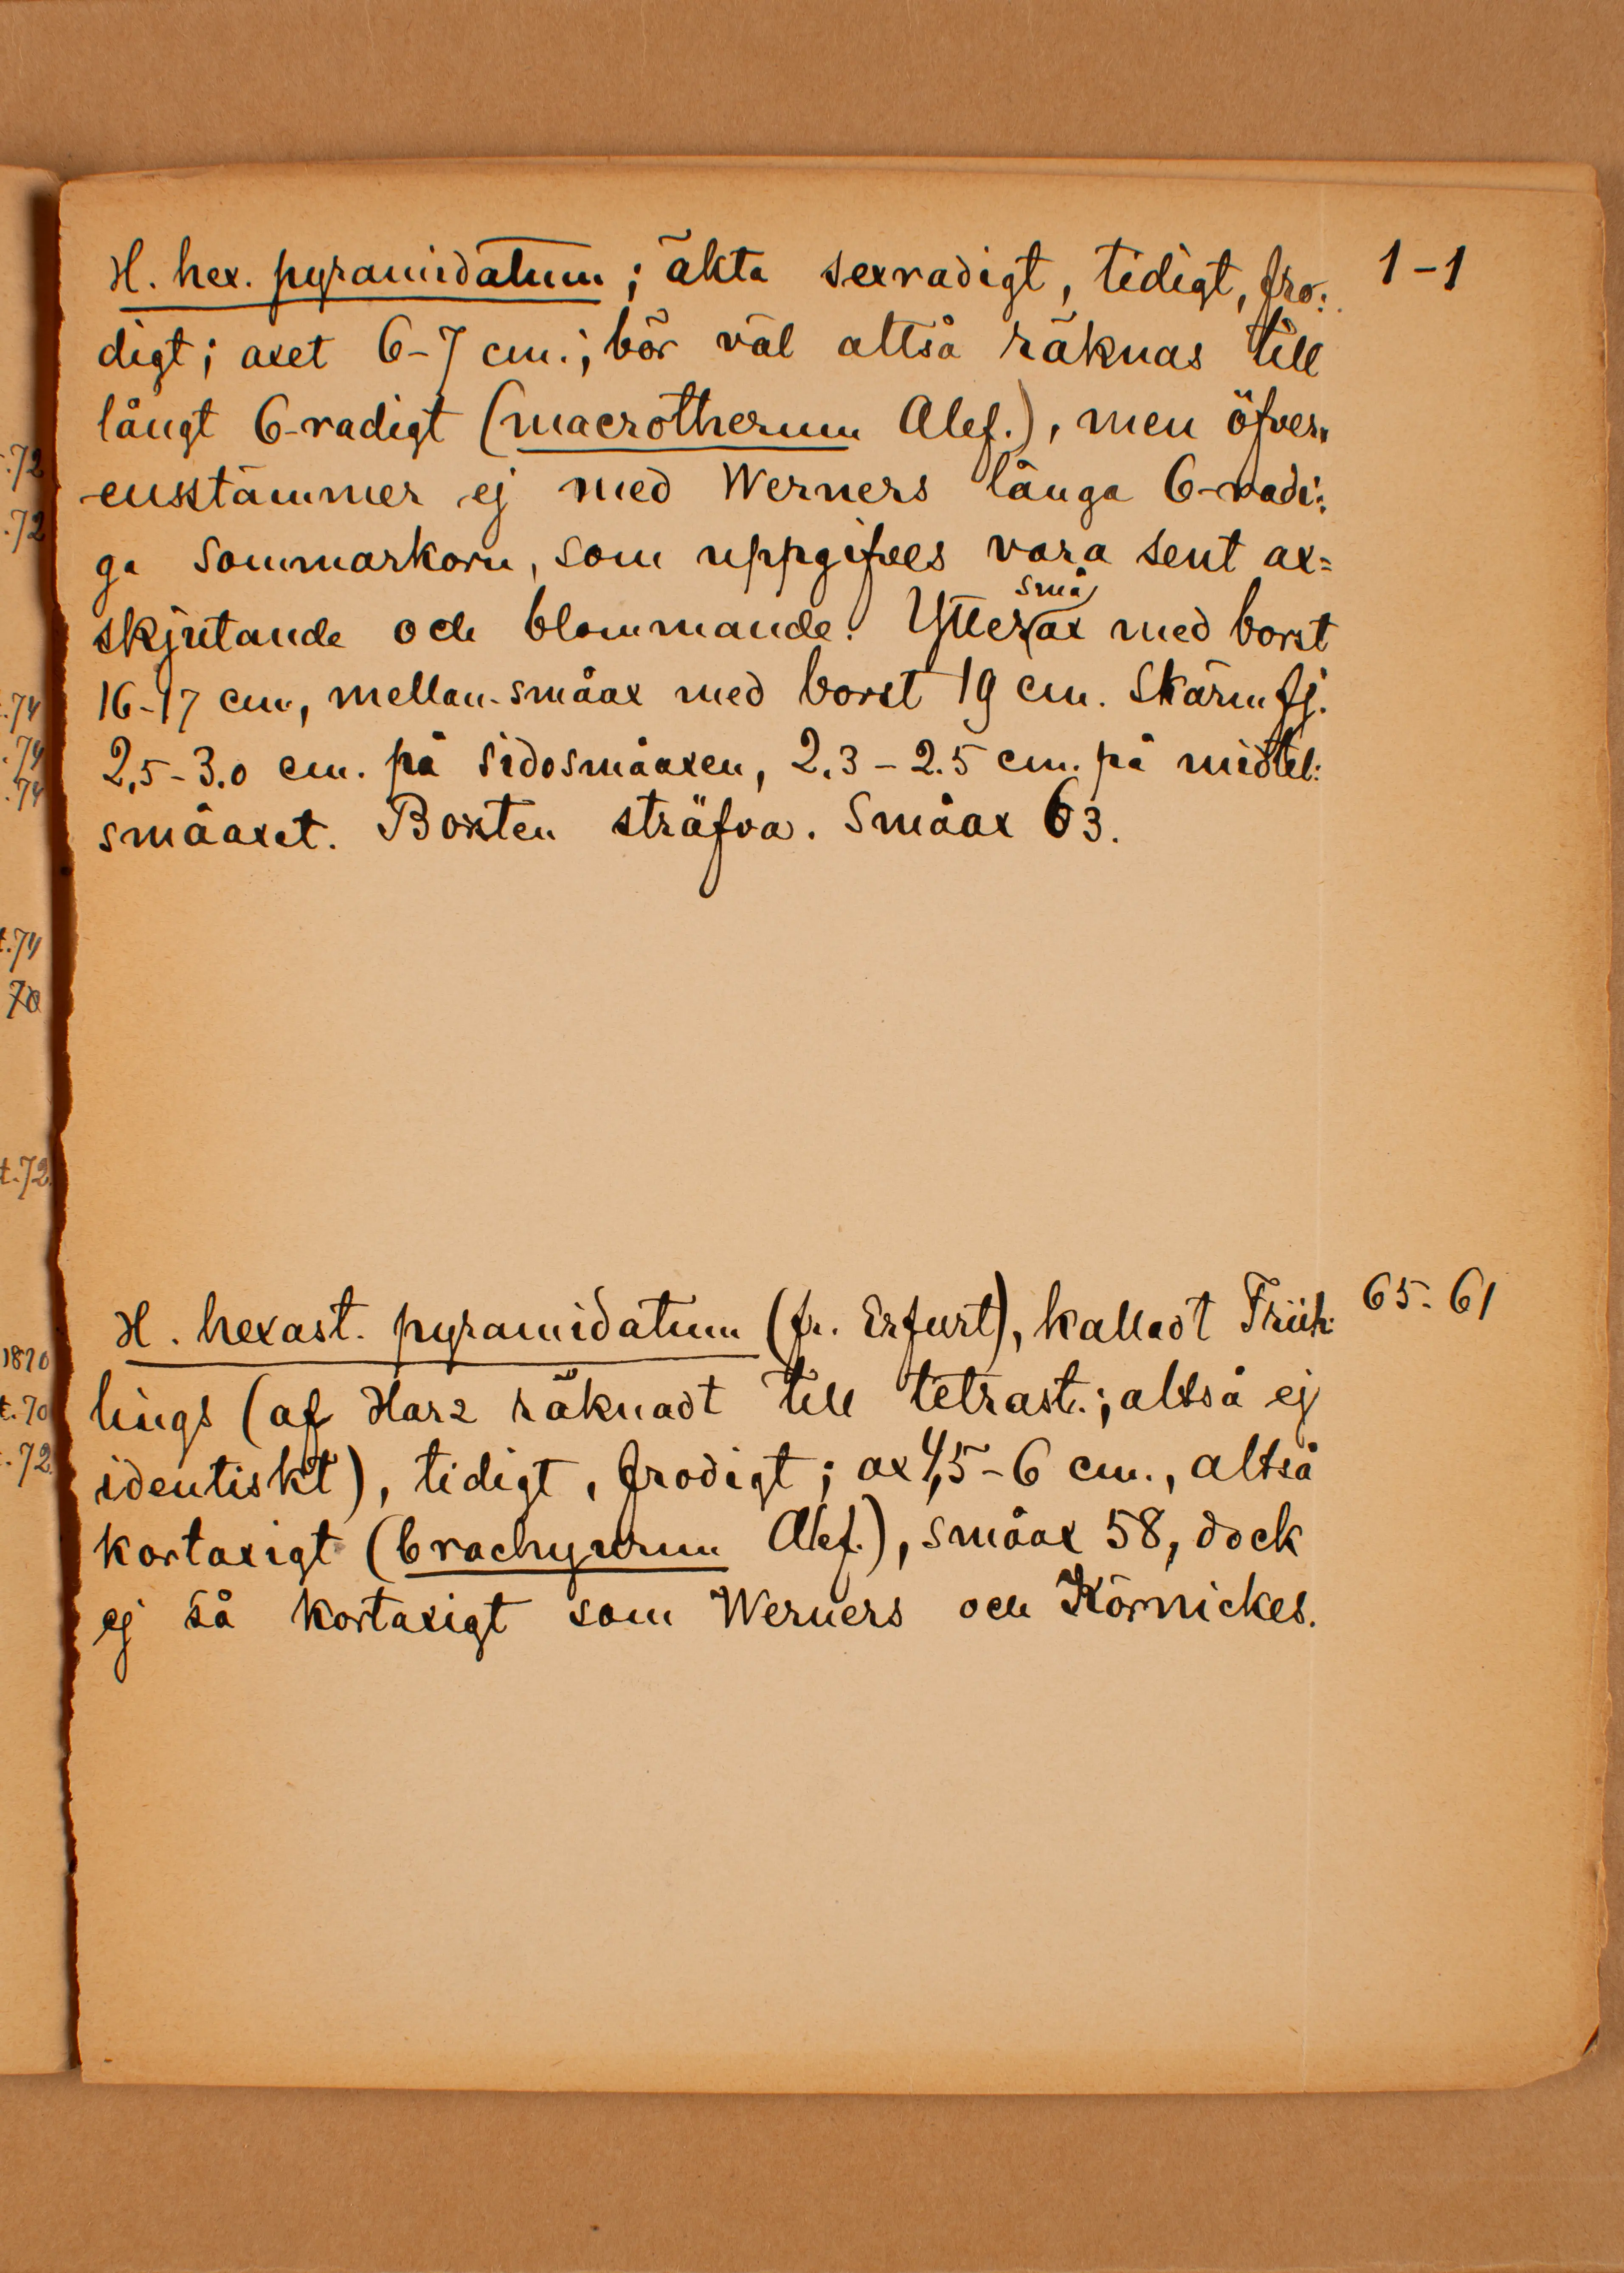 H. hex. pyramidatum; äkta sexradigt, tidigt, fro: 1-1
digt; axet 6-7 cm.; bör väl alltså räknas till
långt 6-radigt (macrotherum Alef.), men öfver,
ensstämmer ej med Werners långa 6-radi:
ga Sommarkorn, som uppgifves vara sent ax=
små
skjutande och blommande. Ytterax med borst
16-17 cm, mellan-småax med borst 19 cm. Skärmfj.
2,5-3.0 cm. på sidosmåaxen, 2.3-2.5 cm. på midtel:
småaxet. Borsten sträfva. Småax 63.
H. hexast. pyramidatum (fr. Erfurt), kalladt Früh: 65-61
lings (af Harz räknadt till tetrast.; altså ej
identiskt), tidigt, frodigt; ax 4,5-6 cm., altså
kortaxigt (brachyurum Alef.), småax 58, dock
ej så kortaxigt som Werners och Körnickes.
.72
.72
.74
.74
.74
t.74
70
t.72.
1870
t.70
.72.